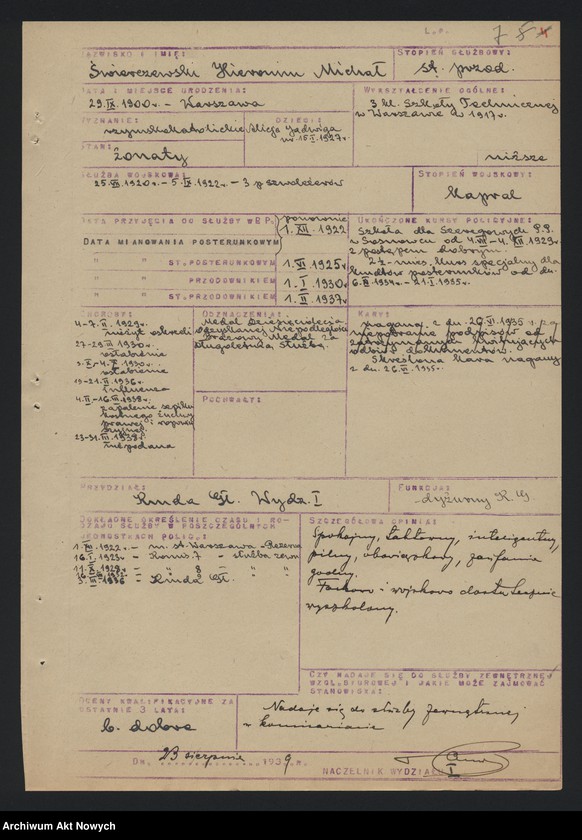 L.p. 78
NAZWISKO I IMIĘ:
Świerczewski Hieronim Michał
STOPIEŃ SŁUŻBOWY:
st. przod.
DATA I MIEJSCE URODZENIA:
29.IX.1900r. – Warszawa
WYKSZTAŁCENIE OGÓLNE:
3 kl. Szkoły Technicznej
w Warszawie w 1917r.
niższe
WYZNANIE:
rzymskokatolickie
DZIECI:
Alicja Jadwiga
ur. 15.I.1927r.
STAN:
żonaty
SŁUŻBA WOJSKOWA:
1920r. – 1922r. – 3 p. szwoleżerów
STOPIEŃ WOJSKOWY:
Kapral
DATA PRZYJĘCIA DO SŁUŻBY W P.P.
ponownie
1.XII.1922
DATA MIANOWANIA POSTERUNKOWYM
" " ST.POSTERUNKOWYM 1.VI.1925r.
" " PRZODOWNIKIEM 1.I.1930r.
" " ST.PRZODOWNIKIEM 1.II.1937r.
UKOŃCZONE KURSY POLICYJNE:
Szkoła dla Szeregowych P.P.
w Sosnowcu od 1929r.
z postępem dobrym.
kurs specjalny dla
posterunków od dn.
1934r. – 21.I.1935r.
CHOROBY:
4-7.II.1929r.
nieżyt oskrzeli
27-29.III.1930r.
osłabienie
osłabienie
19-21.II.1936r.
Influenza
4.II.-16.III.1938r.
zapalenie
prawej
23-31.III.1938r.
ODZNACZENIA:
Medal Dziesięciolecia
Odzyskanej Niepodległości
Brązowy Medal za
Długoletnią Służbę.
POCHWAŁY:
KARY:
nagana z dn. 26.VI.1935 r. za
podpisów od
zatrzymanych kwitujących
odbiór dokumentów.
Skreślona kara nagany
z dn. 26.VI.1935r.
PRZYDZIAŁ:
Kmda Gł. Wydz. I
FUNKCJA:
dyżurny K.G.
DOKŁADNE OKREŚLENIE CZASU I RODZAJU SŁUŻBY W POSZCZEGÓLNYCH
JEDNOSTKACH POLIC.:
1.XII.1922r. – m. st. Warszawa – Rezerwa
1923r. – Komis. 7 – służba zewn.
1928r. – " 8 – " "
1936r. – Kmda Gł. " "
SZCZEGÓŁOWA OPINIA:
Spokojny, taktowny, inteligentny,
pilny, obowiązkowy, zaufania
godny.
Fachowo i wojskowo dostatecznie
wyszkolony.
CZY NADAJE SIĘ DO SŁUŻBY ZEWNĘTRZNEJ
WZGL. BIUROWEJ I JAKIE MOŻE ZAJMOWAĆ
STANOWISKA:
Nadaje się do służby zewnętrznej
w komisariacie
OCENY KWALIFIKACYJNE ZA
OSTATNIE 3 LATA:
b. dobra
Dn. 23 sierpnia 1939 r.
NACZELNIK WYDZIAŁU I
Archiwum Akt Nowych